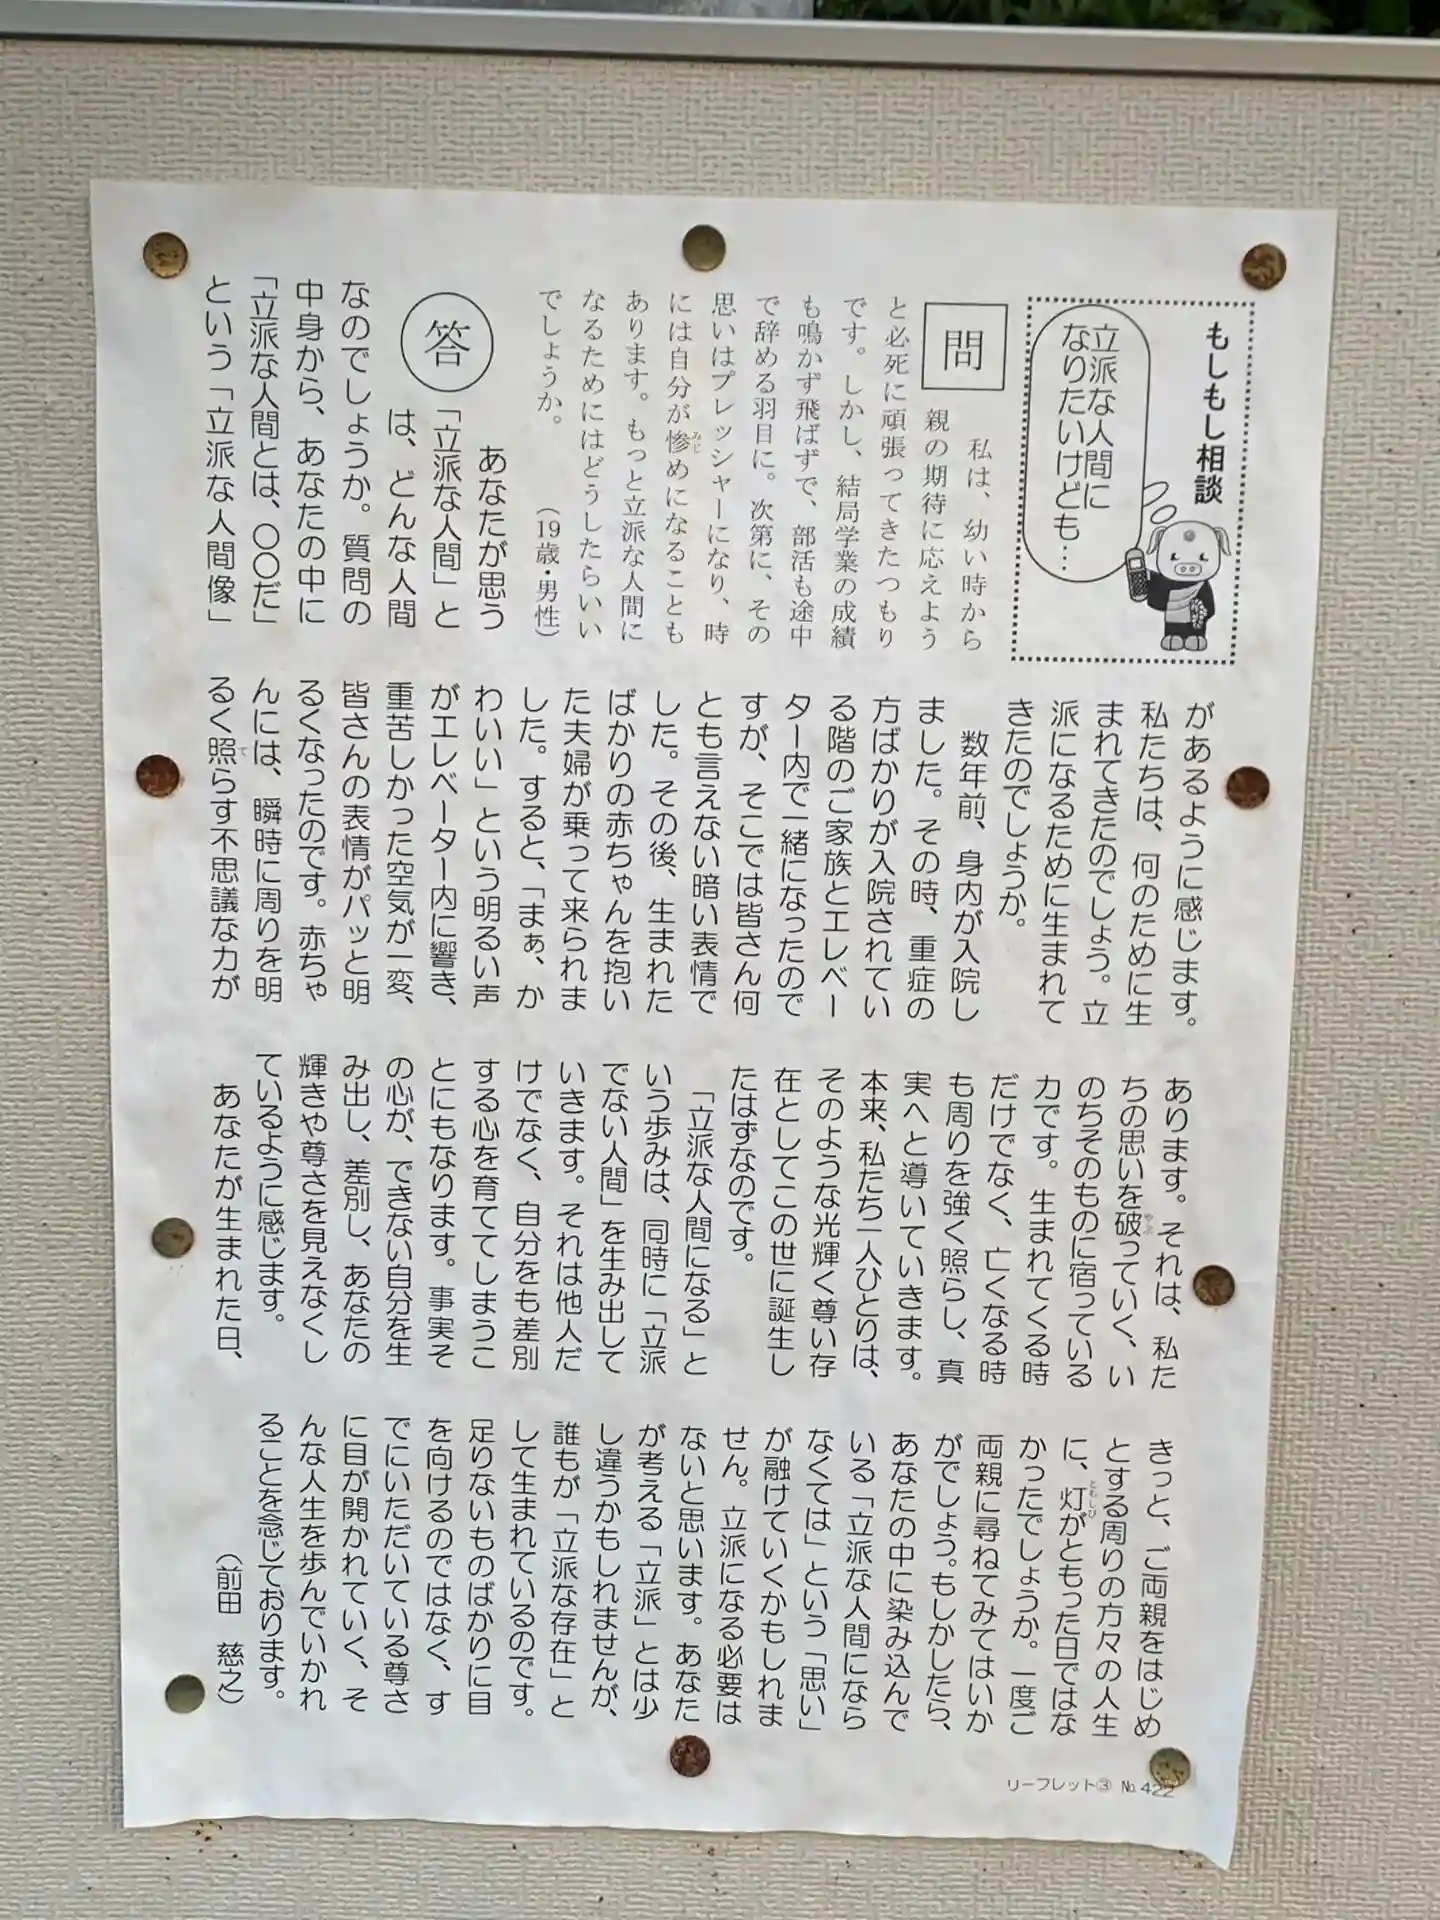 もしもし相談
立派な人間に
なりたいけども…
問
私は、幼い時から
親の期待に応えよう
と必死に頑張ってきたつもり
です。しかし、結局学業の成績
も鳴かず飛ばずで、部活も途中
で辞める羽目に。次第に、その
思いはプレッシャーになり、時
には自分が惨めになることも
みじ
あります。もっと立派な人間に
なるためにはどうしたらいい
でしょうか。
（19歳・男性）
答
あなたが思う
「立派な人間」と
は、どんな人間
なのでしょうか。質問の
中身から、あなたの中に
「立派な人間とは、〇〇だ」
という「立派な人間像」
があるように感じます。
私たちは、何のために生
まれてきたのでしょう。立
派になるために生まれて
きたのでしょうか。
数年前、身内が入院し
ました。その時、重症の
方ばかりが入院されてい
る階のご家族とエレベー
ター内で一緒になったので
すが、そこでは皆さん何
とも言えない暗い表情で
した。その後、生まれた
ばかりの赤ちゃんを抱い
た夫婦が乗って来られま
した。すると、「まぁ、か
わいい」という明るい声
がエレベーター内に響き、
重苦しかった空気が一変、
皆さんの表情がパッと明
るくなったのです。赤ちゃ
んには、瞬時に周りを明
るく照らす不思議な力が
て
あります。それは、私た
ちの思いを破っていく、い
やぶ
のちそのものに宿っている
力です。生まれてくる時
だけでなく、亡くなる時
も周りを強く照らし、真
実へと導いていきます。
本来、私たち一人ひとりは、
そのような光輝く尊い存
在としてこの世に誕生し
たはずなのです。
「立派な人間になる」と
いう歩みは、同時に「立派
でない人間」を生み出して
いきます。それは他人だ
けでなく、自分をも差別
する心を育ててしまうこ
とにもなります。事実そ
の心が、できない自分を生
み出し、差別し、あなたの
輝きや尊さを見えなくし
ているように感じます。
あなたが生まれた日、
きっと、ご両親をはじめ
とする周りの方々の人生
に、灯がともった日ではな
ともしび
かったでしょうか。一度ご
両親に尋ねてみてはいか
がでしょう。もしかしたら、
あなたの中に染み込んで
いる「立派な人間になら
なくては」という「思い」
が融けていくかもしれま
せん。立派になる必要は
ないと思います。あなた
が考える「立派」とは少
し違うかもしれませんが、
誰もが「立派な存在」と
して生まれているのです。
足りないものばかりに目
を向けるのではなく、す
でにいただいている尊さ
に目が開かれていく、そ
んな人生を歩んでいかれ
ることを念じております。
（前田　慈之）
リーフレット③ №422